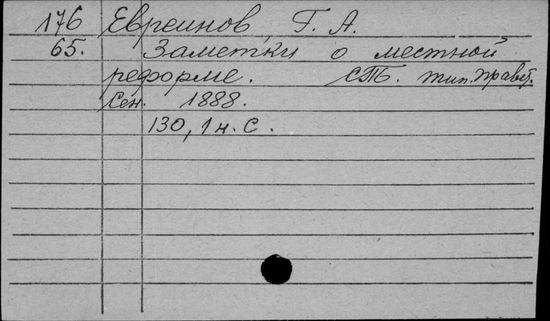 176 Евреинов, Г. А.
65. Заметки о местной
реформе. СПб. тип. правит.
Сен. 1888.
130, 1 н. с.